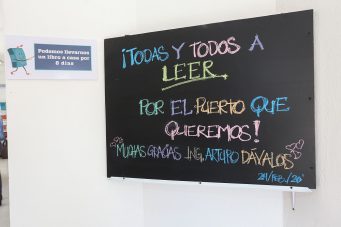 Podemos llevarnos
un libro a casa por
8 días
¡TODAS Y TODOS A
LEER.
POR EL PUERTO QUE
QUEREMOS!
MUCHAS GRACIAS ING. ARTURO DÁVALOS